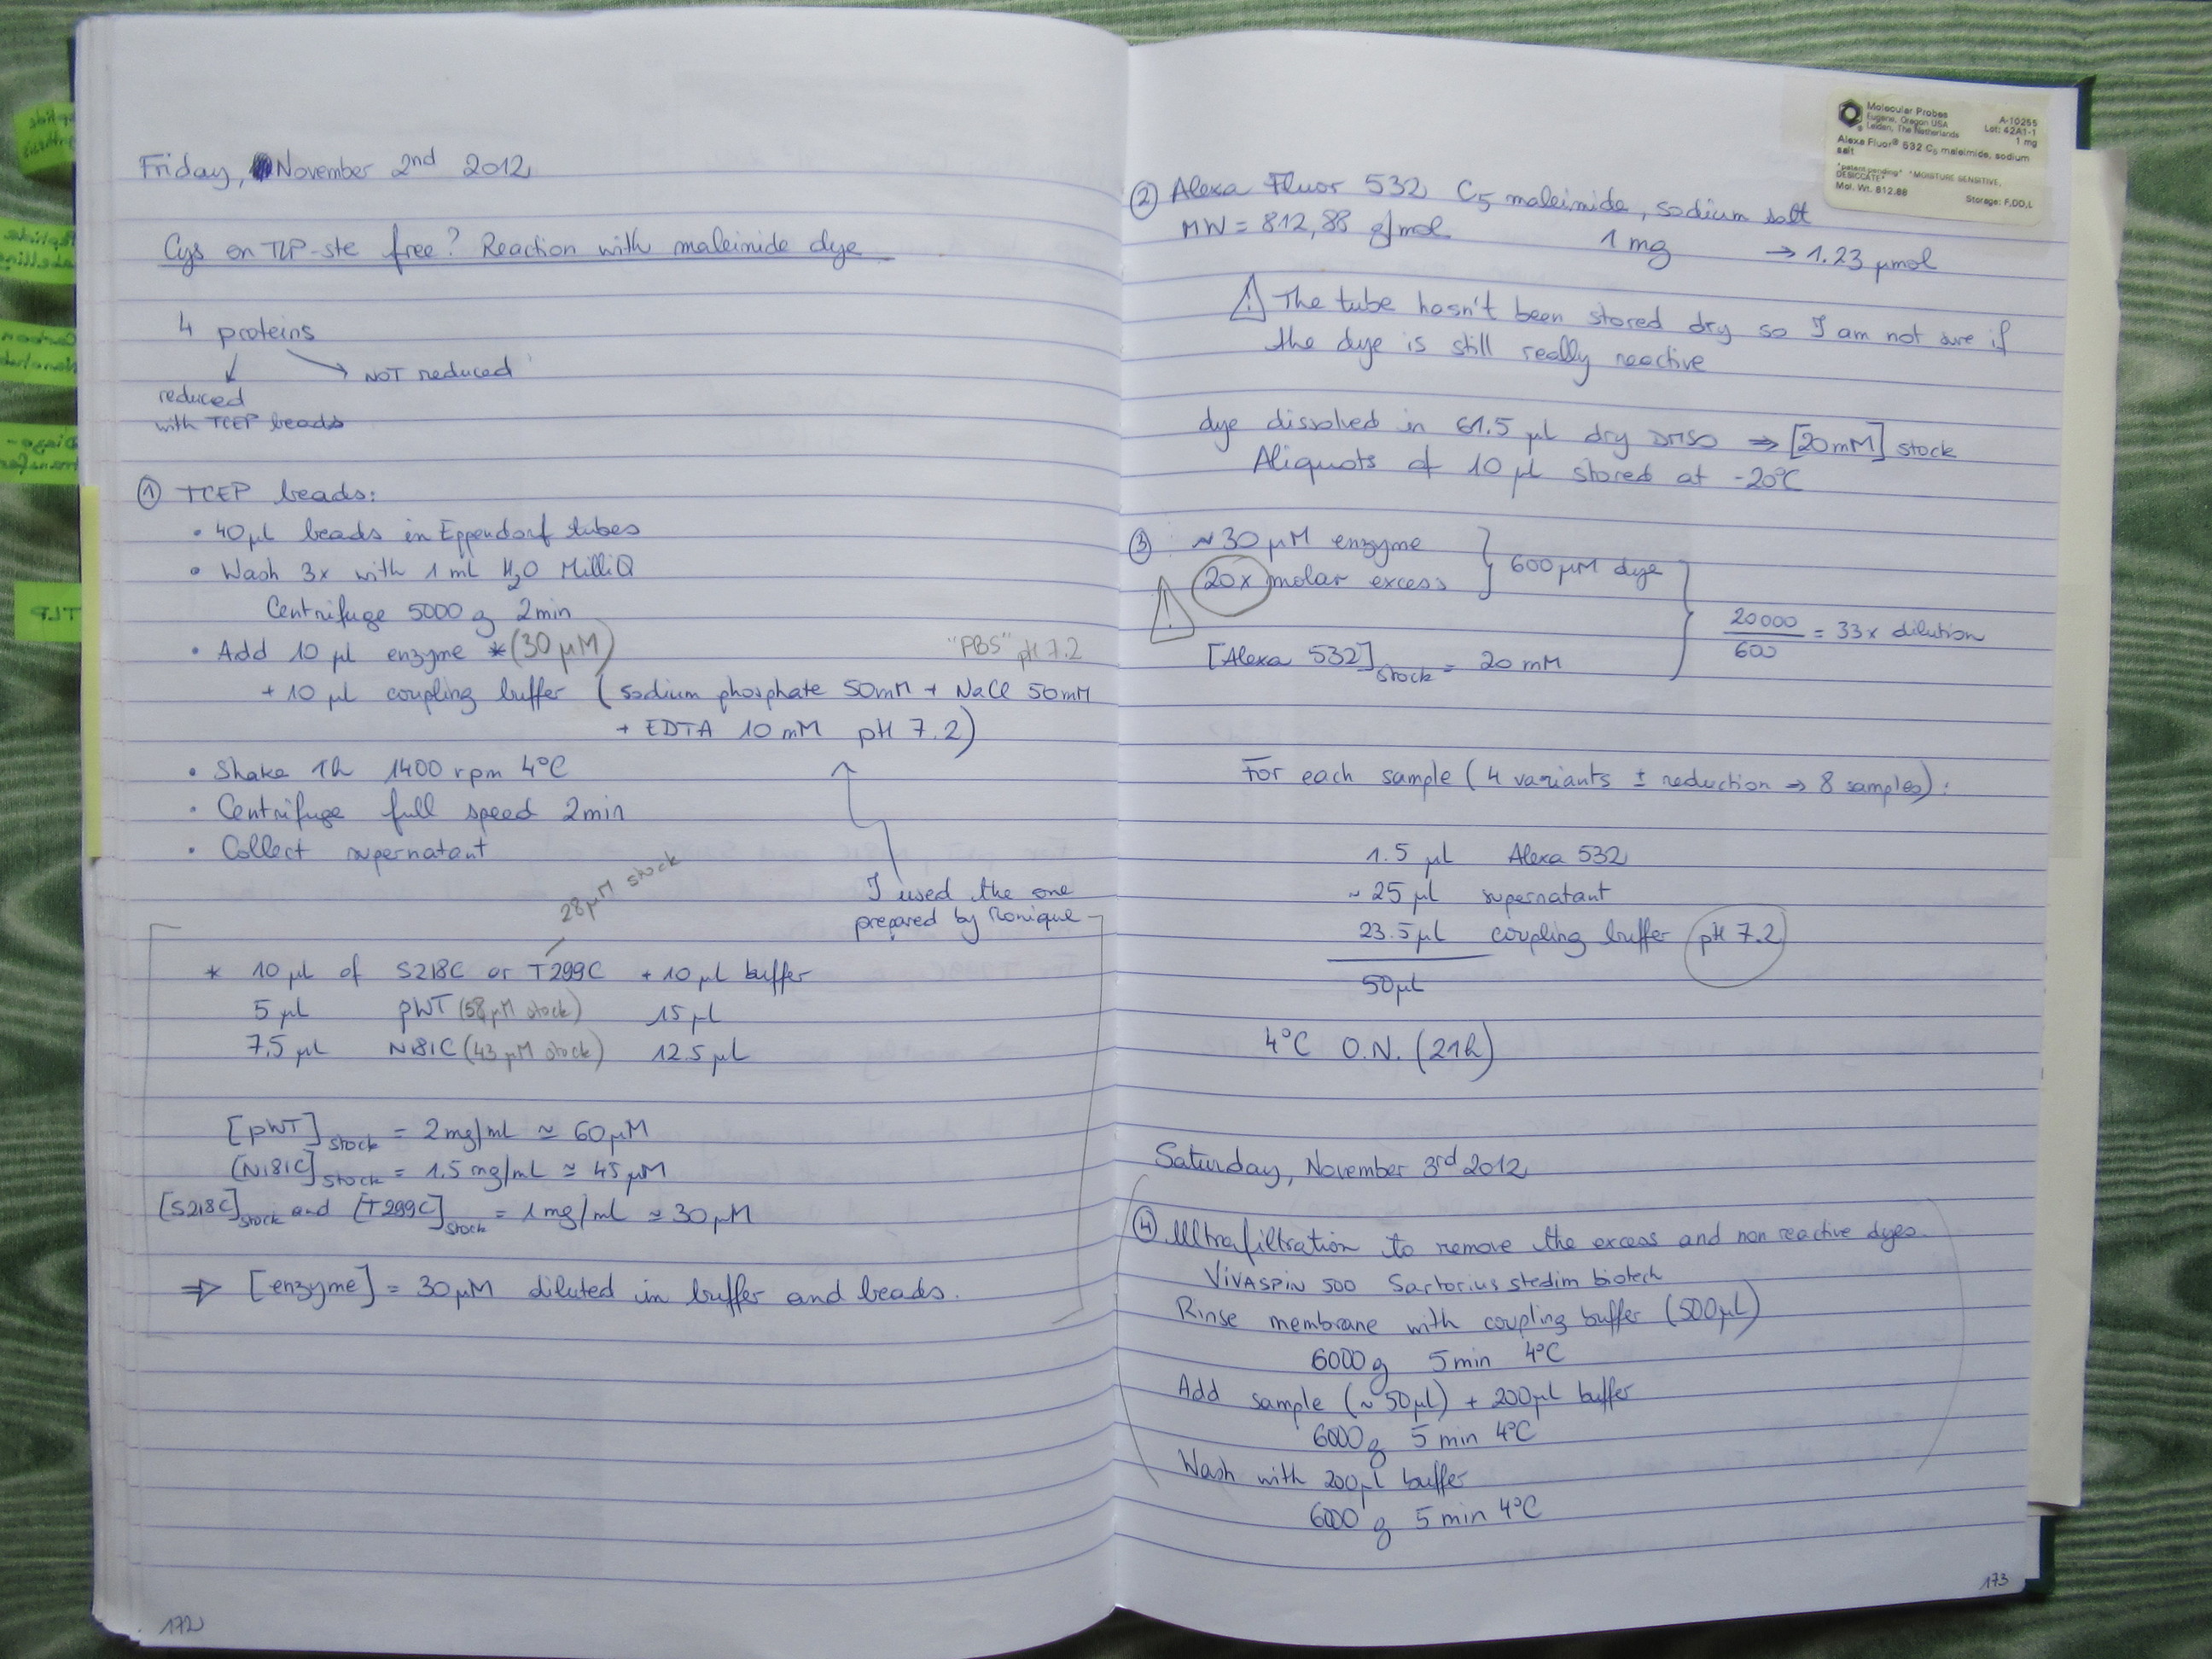 Friday, November 2nd 2012
Cys on TLP-ste free? Reaction with maleimide dye
4 proteins
NOT reduced
reduced
with TCEP beads
① TCEP beads:
• 40 µl beads in Eppendorf tubes
• Wash 3x with 1 mL H2O MilliQ
Centrifuge 5000 g 2min
• Add 10 µl enzyme * (30 µM)
"PBS" pH 7.2
+ 10 µl coupling buffer (sodium phosphate 50mM + NaCl 50mM
+ EDTA 10 mM pH 7.2)
• Shake 1h 1400 rpm 4°C
• Centrifuge full speed 2min
• Collect supernatant
28µM stock
I used the one
prepared by Monique
* 10 µl of S218C or T299C + 10 µl buffer
5 µl pWT (58µM stock) 15 µl
7,5 µl N181C (43 µM stock) 12.5 µL
[pWT]stock = 2mg/mL ≃ 60µM
[N181C]stock = 1.5 mg/mL ≃ 45 µM
[S218C]stock and [T299C]stock = 1mg/mL ≃ 30µM
⇒ [enzyme] = 30µM diluted in buffer and beads.
172
Molecular Probes
Eugene, Oregon USA
Leiden, The Netherlands
A-10255
Lot: 42A1-1
1 mg
Alexa Fluor® 532 C5 maleimide, sodium
salt
*patent pending* *MOISTURE SENSITIVE,
DESICCATE*
Mol. Wt. 812.88
Storage: F,DD,L
② Alexa Fluor 532 C5 maleimide, sodium salt
MW = 812,88 g/mol 1 mg → 1.23 µmol
⚠ The tube hasn't been stored dry so I am not sure if
the dye is still really reactive
dye dissolved in 61.5 µl dry DMSO ⇒ [20mM] stock
Aliquots of 10 µl stored at -20°C
③ ~ 30 µM enzyme
20x molar excess
600 µM dye
20000/600 = 33x dilution
[Alexa 532]stock = 20 mM
For each sample (4 variants ± reduction ⇒ 8 samples):
1.5 µL Alexa 532
~ 25 µl supernatant
23.5µl coupling buffer pH 7.2
50µl
4°C O.N. (21h)
Saturday, November 3rd 2012
④ Ultrafiltration to remove the excess and non reactive dyes.
VIVASPIN 500 Sartorius stedim biotech
Rinse membrane with coupling buffer (500µl)
6000g 5min 4°C
Add sample (~50µl) + 200µl buffer
6000g 5 min 4°C
Wash with 200µl buffer
6000 g 5 min 4°C
173
TLP